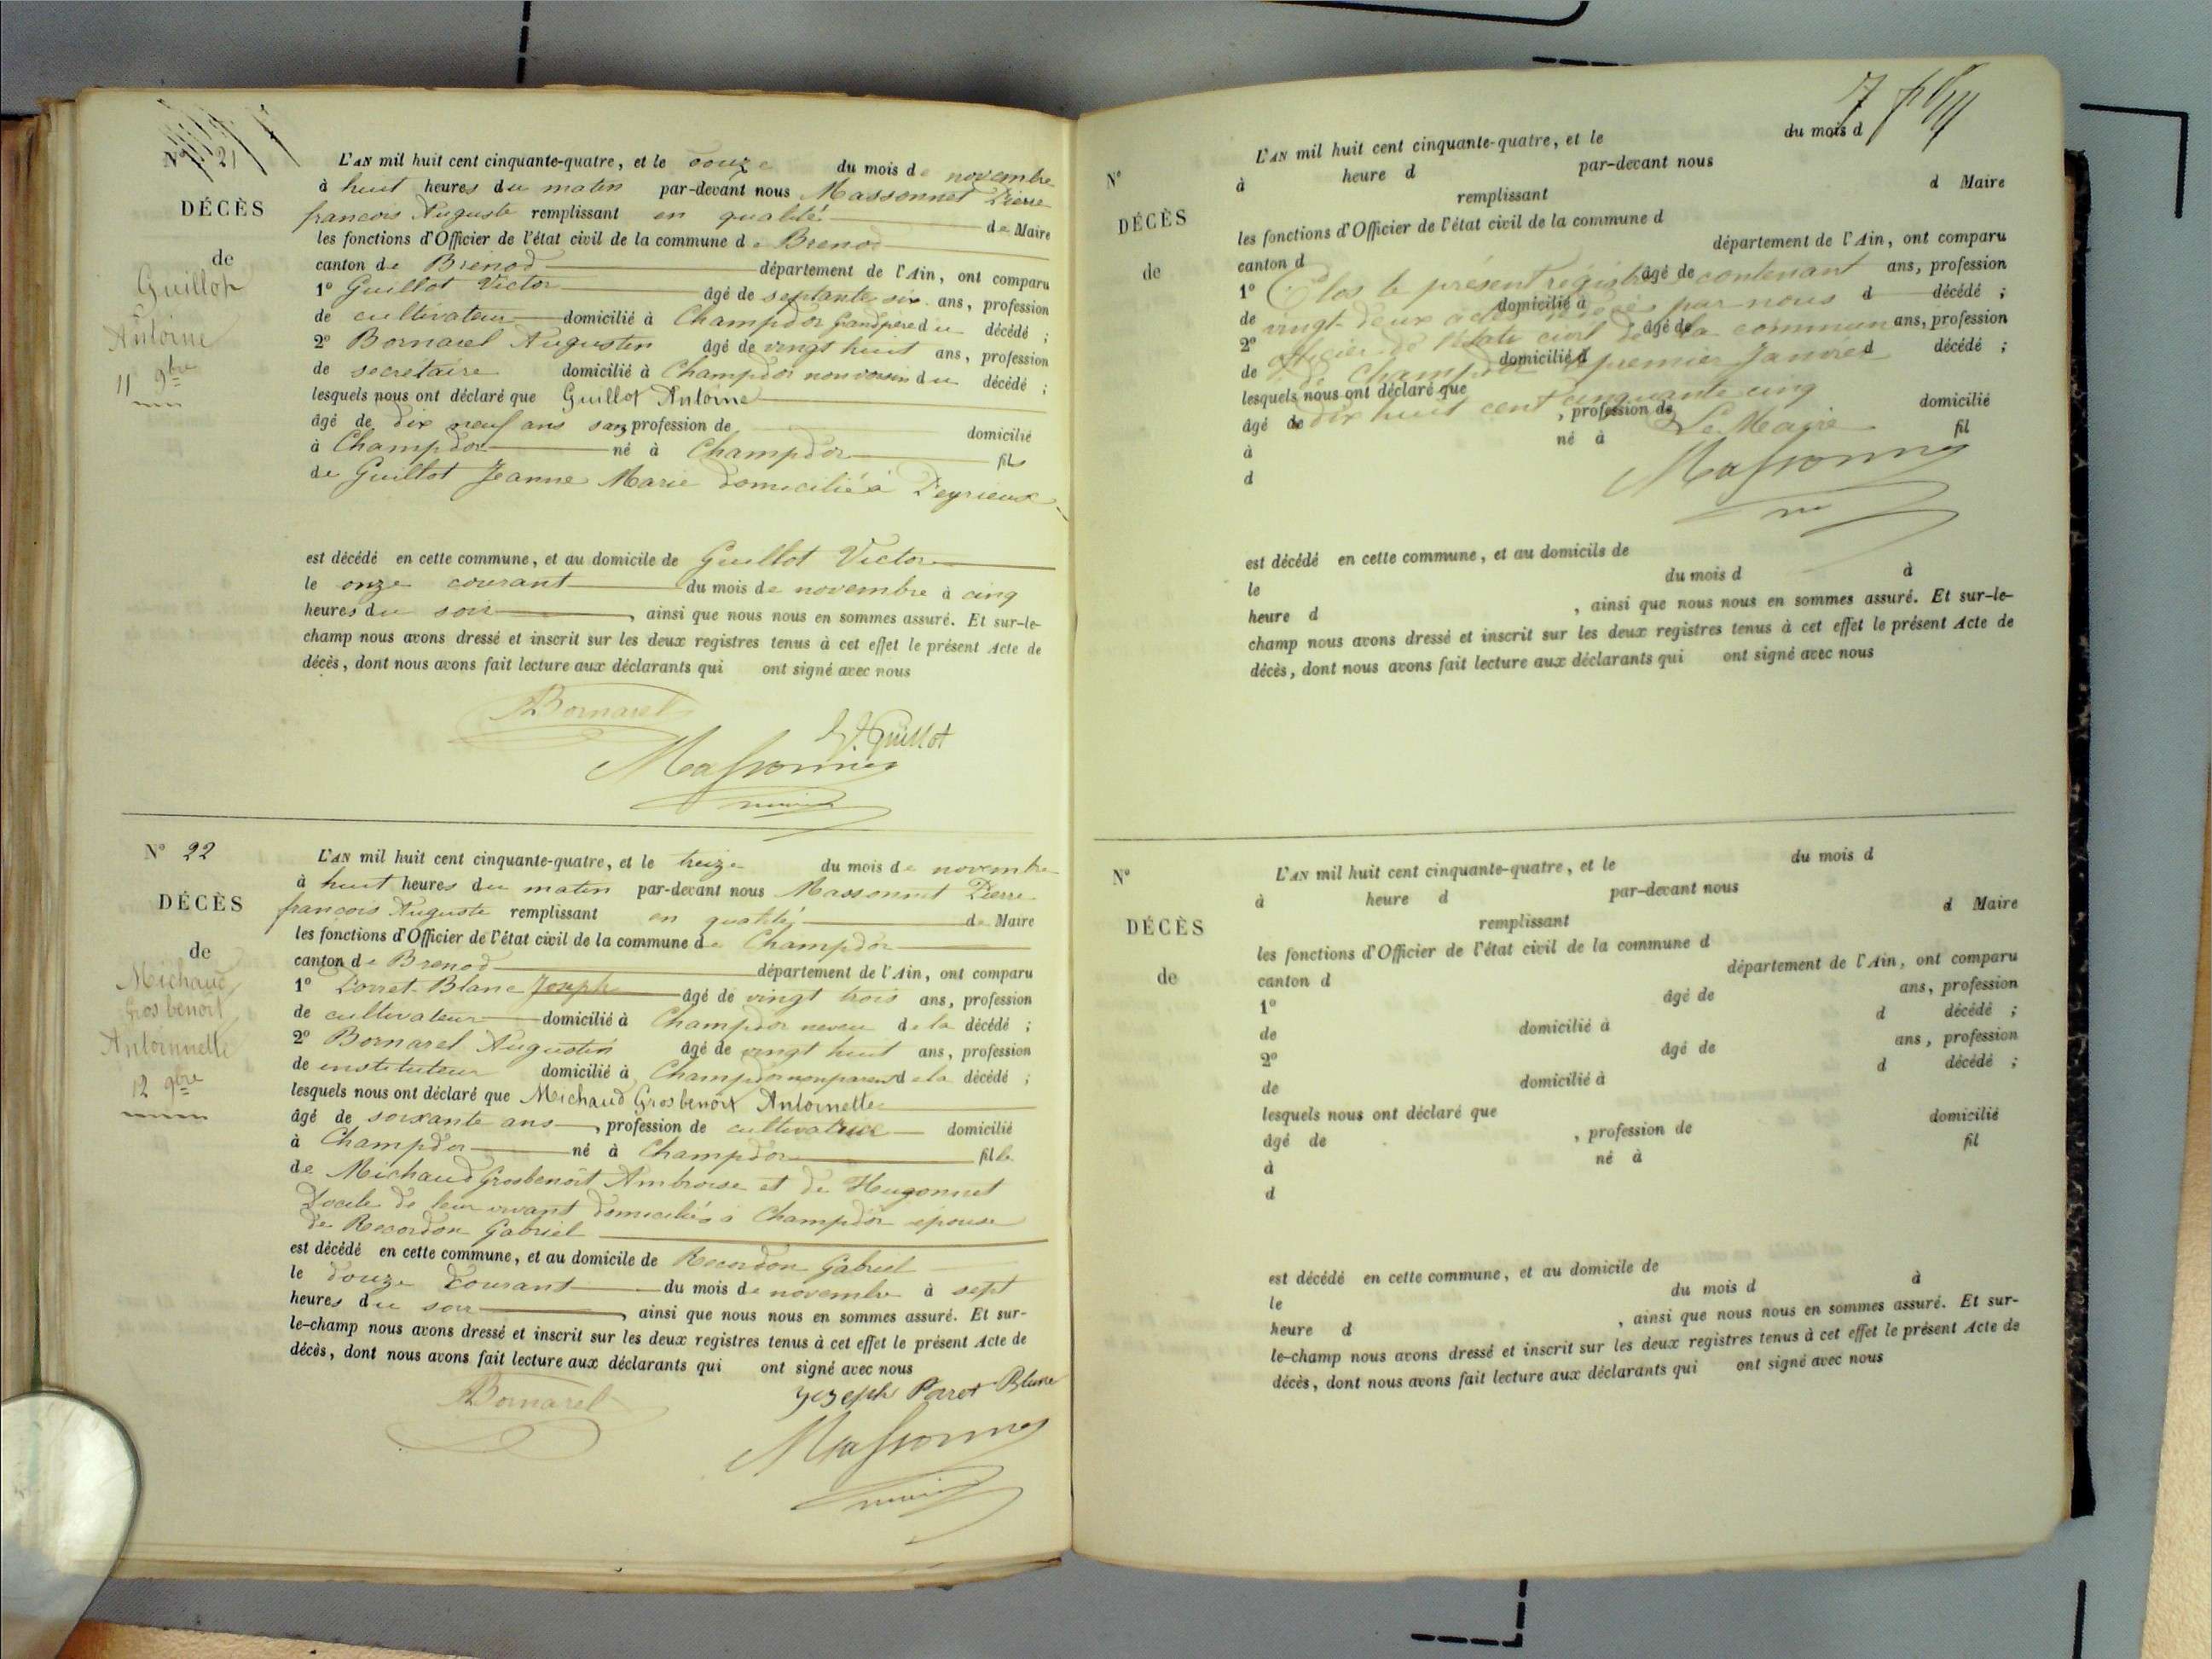 N° 21
DÉCÈS
de
Guillot
Antoine
11 9bre
L'AN mil huit cent cinquante-quatre, et le douze du mois de novembre
à huit heures du matin par-devant nous Massonnet Pierre
francois Auguste remplissant en qualité de Maire
les fonctions d'Officier de l'état civil de la commune de Brenod
canton de Brenod département de l'Ain, ont comparu
1° Guillot Victor âgé de septante six ans, profession
de cultivateur domicilié à Champdor grandpère du décédé ;
2° Bornarel Augustin âgé de vingt huit ans, profession
de secrétaire domicilié à Champdor non voisin du décédé ;
lesquels nous ont déclaré que Guillot Antoine
âgé de dix neuf ans sans profession de domicilié
à Champdor né à Champdor fils
de Guillot Jeanne Marie domicilié à Peyrieux
est décédé en cette commune, et au domicile de Guillot Victor
le onze courant du mois de novembre à cinq
heures du soir , ainsi que nous nous en sommes assuré. Et sur-le-
champ nous avons dressé et inscrit sur les deux registres tenus à cet effet le présent Acte de
décès, dont nous avons fait lecture aux déclarants qui ont signé avec nous
Bornarel
V. Guillot
Massonnet
N° 22
DÉCÈS
de
Michaud
Grosbenoit
Antoinnette
12 9bre
L'AN mil huit cent cinquante-quatre, et le treize du mois de novembre
à huit heures du matin par-devant nous Massonnet Pierre
francois Auguste remplissant en qualité de Maire
les fonctions d'Officier de l'état civil de la commune de Champdor
canton de Brenod département de l'Ain, ont comparu
1° Porret-Blanc Joseph âgé de vingt trois ans, profession
de cultivateur domicilié à Champdor neveu de la décédé ;
2° Bornarel Augustin âgé de vingt huit ans, profession
de instituteur domicilié à Champdor non parent de la décédé ;
lesquels nous ont déclaré que Michaud Grosbenoit Antoinette
âgé de soixante ans , profession de cultivatrice domicilié
à Champdor né à Champdor fille
de Michaud Grosbenoit Ambroise et de Hugonnet
de leur vivant domiciliés à Champdor épouse
de Recordon Gabriel
est décédé en cette commune, et au domicile de Recordon Gabriel
le douze courant du mois de novembre à sept
heures du soir , ainsi que nous nous en sommes assuré. Et sur-
le-champ nous avons dressé et inscrit sur les deux registres tenus à cet effet le présent Acte de
décès, dont nous avons fait lecture aux déclarants qui ont signé avec nous
Bornarel
Joseph Paret Blanc
Massonnet
7
N°
DÉCÈS
de
L'AN mil huit cent cinquante-quatre, et le du mois d
à heure d par-devant nous
remplissant d Maire
les fonctions d'Officier de l'état civil de la commune d
canton d département de l'Ain, ont comparu
1° âgé de ans, profession
Clos le présent régistre contenant
de domicilié à d décédé ;
vingt-deux actes par nous
2° âgé de ans, profession
officier de l'état civil de la commune
de domicilié à d décédé ;
de Champdor le premier Janvier
lesquels nous ont déclaré que
dix huit cent cinquante cinq
âgé de , profession de domicilié
Le Maire
à né à fil
d
Massonnet
est décédé en cette commune, et au domicils de
le du mois d à
heure d , ainsi que nous nous en sommes assuré. Et sur-le-
champ nous avons dressé et inscrit sur les deux registres tenus à cet effet le présent Acte de
décès, dont nous avons fait lecture aux déclarants qui ont signé avec nous
N°
DÉCÈS
de
L'AN mil huit cent cinquante-quatre, et le du mois d
à heure d par-devant nous
remplissant d Maire
les fonctions d'Officier de l'état civil de la commune d
canton d département de l'Ain, ont comparu
1° âgé de ans, profession
de domicilié à d décédé ;
2° âgé de ans, profession
de domicilié à d décédé ;
lesquels nous ont déclaré que
âgé de , profession de domicilié
à né à fil
d
est décédé en cette commune, et au domicile de
le du mois d à
heure d , ainsi que nous nous en sommes assuré. Et sur-
le-champ nous avons dressé et inscrit sur les deux registres tenus à cet effet le présent Acte de
décès, dont nous avons fait lecture aux déclarants qui ont signé avec nous